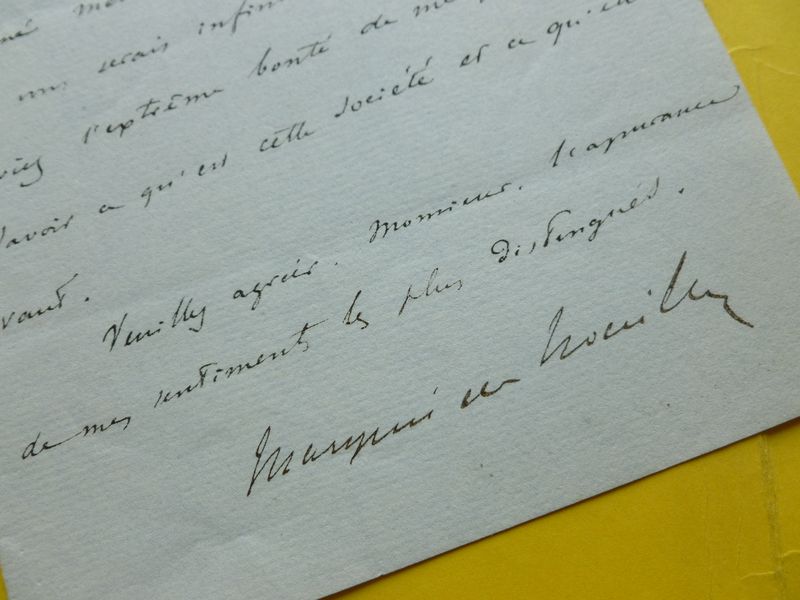 vous serais infini
l'extrême bonté de me
savoir ce qu'est cette société et ce qu'en
vaut.
Veuillez agréer, Monsieur, l'assurance
de mes sentiments les plus distingués.
Marquis de Noailles